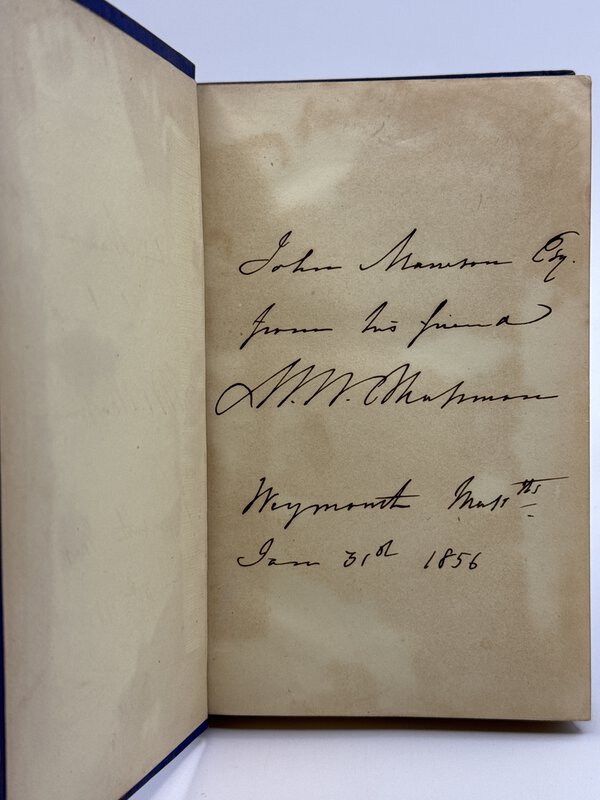 John Mawson Esq.
from his friend
M. W. Chapman
Weymouth Mass ths
Jan 31st 1856